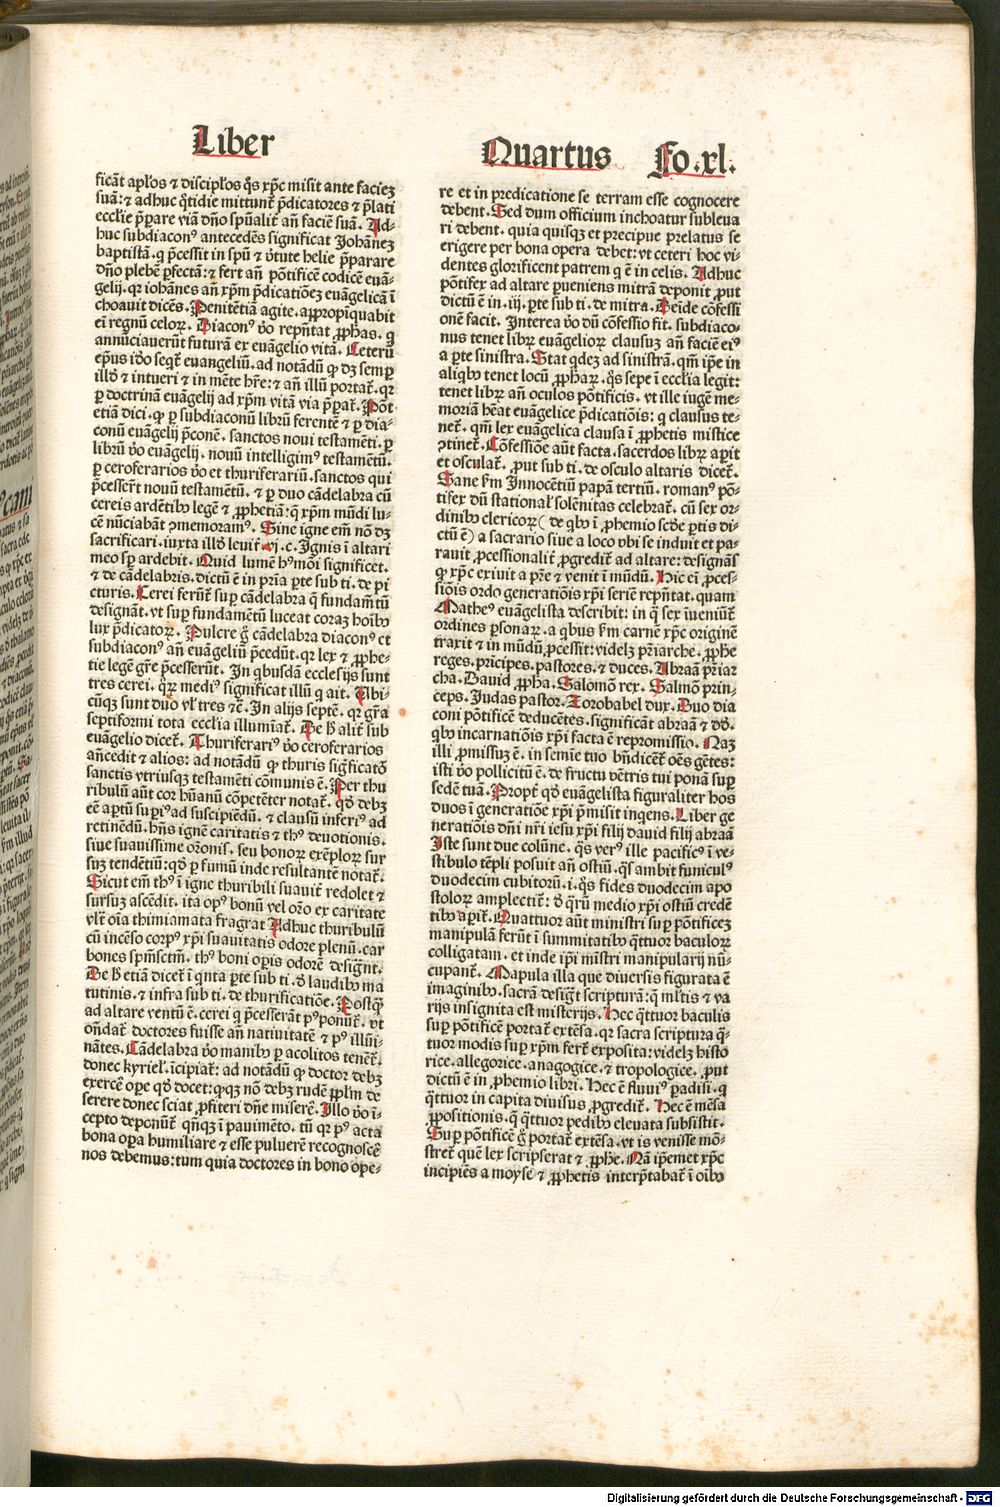 Liber
Quartus Fo.xl.
ficãt aplos ⁊ discipłos q̃s xp̃c misit ante faciez
suã: ⁊ adhuc q̃tidie mittunt̃ p̃dicatores ⁊ p̃lati
ecclie p̃parare viã dño spũalit̃ añ faciẽ suã. Ad-
huc subdiaconꝰ antecedẽs significat Johãnez
baptistã. q̃ p̃cessit in spũ ⁊ ṽtute helie p̃parare
dño plebẽ ꝑfectã: ⁊ fert añ põtificẽ codicẽ euã-
gelij. qꝛ iohãnes añ xp̃m p̃dicatiõez euãgelicã ĩ
choauit dicẽs. Penitẽtiã agite. appropĩquabit
eĩ regnũ celoꝝ. Diaconꝰ ṽo rep̃ntat ꝓphas. q̃
annũciauerũt futurã ex euãgelio vitã. Ceterũ
ep̃us id̃o seqt̃ euangeliũ. ad notãdũ ꝙ dz semꝑ
illd̃ ⁊ intueri ⁊ in mẽte hr̃e: ⁊ añ illũ portar̃. qꝛ
ꝑ doctrinã euãgelij ad xp̃m vitã via p̃par̃. Põt
etiã dici. ꝙ ꝑ subdiaconũ librũ ferentẽ ⁊ ꝑ dia-
conũ euãgelij p̃conẽ. sanctos noui testamẽti. ꝑ
librũ ṽo euãgelij. nouũ intelligimꝰ testamẽtũ.
ꝑ ceroferarios ṽo et thuriferariũ. sanctos qui
p̃cessert̃ nouũ testamẽtũ. ⁊ ꝑ duo cãdelabra cũ
cereis ardẽtibꝰ legẽ ⁊ ꝓphetiã: q̃ xp̃m mũdi lu-
cẽ nũciabãt ꝯmemoramꝰ. Sine igne em̃ nõ dz
sacrificari. iuxta illd̃ leuit̃. vj. c. Ignis ĩ altari
meo sꝑ ardebit. Quid lumẽ hꝰmõi significet.
⁊ de cãdelabris. dictũ ẽ in prĩa ꝑte sub ti. de pi
cturis. Cerei ferũt̃ suꝑ cãdelabra q̃ fundam̃tũ
designãt. vt suꝑ fundamẽtũ luceat coraz hoĩbꝰ
lux p̃dicatoꝝ. Pulcre g̃ cãdelabra diaconꝰ et
subdiaconꝰ añ euãgeliũ p̃cedũt. qꝛ lex ⁊ ꝓphe-
tie legẽ gr̃e p̃cesserũt. In qbusdã ecclesijs sunt
tres cerei. q̃ꝛ mediꝰ significat illũ q̃ ait. Vbi-
cũqz sunt duo vł tres ⁊c̃. In alijs septẽ. qꝛ gr̃a
septiformi tota ecclia illumĩat̃. De h̃ alit̃ sub
euãgelio dicet̃. Thuriferariꝰ ṽo ceroferarios
añcedit ⁊ alios: ad notãdũ ꝙ thuris sig̃ficatõ
sanctis vtriusqz testamẽti cõmunis ẽ. Per thu
ribulũ aũt cor hũanũ cõpetẽter notat̃. qd̃ debz
eẽ aꝑtũ suꝑiꝰ ad suscipiẽdũ. ⁊ clausũ inferiꝰ ad
retinẽdũ. hñs ignẽ caritatis ⁊ thꝰ deuotionis.
siue suauissime or̃onis. seu bonoꝝ exẽploꝝ sur
suz tendẽtiũ: qd̃ ꝑ fumũ inde resultantẽ notat̃.
Sicut em̃ thꝰ ĩ igne thuribili suauit̃ redolet ⁊
sursuz ascẽdit. ita opꝰ bonũ vel or̃o ex caritate
vłt̃ oĩa thimiamata fragrat Adhuc thuribulũ
cũ incẽso corpꝰ xp̃i suauitatis odore plenũ. car
bones spm̃sctm̃. thꝰ boni oꝑis odorẽ design̄t.
De h̃ etiã dicet̃ ĩ qnta ꝑte sub ti. d̃ laudibꝰ ma
tutinis. ⁊ infra sub ti. de thurificatiõe. Postq̃ꝫ
ad altare ventũ ẽ. cerei q̃ p̃cesserãt pꝰponũt̃. vt
oñdat̃ doctores fuisse añ natiuitatẽ ⁊ pꝰ illũi-
nãtes. Cãdelabra ṽo manibꝰ ꝑ acolitos tenẽt̃.
donec kyrieł. ĩcipiat̃: ad notãdũ ꝙ doctor debz
exercẽ oꝑe qd̃ docet: ꝙqz nõ debz rudẽ ꝓplm̃ de
serere donec sciat ꝓfiteri dñe miserẽ. Illo ṽo ĩ-
cepto deponũt̃. qñqz ĩ pauimẽto. tũ qꝛ pꝰ acta
bona oꝑa humiliare ⁊ esse puluerẽ recognoscẽ
nos debemus: tum quia doctores in bono ope-
re et in predicatione se terram esse cognocere
debent. Sed dum officium inchoatur subleua
ri debent. quia quisqz et precipue prelatus se
erigere per bona opera debet: vt ceteri hoc vi-
dentes glorificent patrem q̃ ẽ in celis. Adhuc
põtifex ad altare ꝑueniens mitrã deponit ꝓut
dictũ ẽ in. iij. ꝑte sub ti. de mitra. Deĩde cõfessi
onẽ facit. Interea ṽo dũ cõfessio fit. subdiaco-
nus tenet libꝝ euãgelioꝝ clausuz añ faciẽ eiꝰ
a ꝑte sinistra. Stat qdez ad sinistrã. qm̃ ip̃e in
aliqbꝰ tenet locũ ꝓphaꝝ. q̃s sepe ĩ ecclia legit:
tenet libꝝ añ oculos põtificis. vt ille iugẽ me-
moriã hẽat euãgelice p̃dicatiõis: q̃ clausus te-
net̃. qm̃ lex euãgelica clausa ĩ ꝓphetis mistice
ꝯtinet̃. Cõfessiõe aũt facta. sacerdos libꝝ aꝑit
et osculat̃. ꝓut sub ti. de osculo altaris dicet̃.
Sane s̃m Innocẽtiũ papã tertiũ. romanꝰ põ-
tifex dũ stational̃ solẽnitas celebrat̃. cũ sex or-
dinibꝰ clericoꝝ (de qbꝰ ĩ ꝓhemio scd̃e ꝑtis di-
ctũ ẽ) a sacrario siue a loco vbi se induit et pa-
rauit ꝓcessionalit̃ ꝓgredit̃ ad altare: designãs
ꝙ xp̃c exiuit a pr̃e ⁊ venit ĩ mũdũ. Hic eĩ ꝓces-
siõis ordo generatiõis xp̃i seriẽ rep̃ntat. quam
Matheꝰ euãgelista describit: in q̃ sex ĩueniũt̃
ordines ꝑsonaꝝ. a qbus s̃m carnẽ xp̃c originẽ
traxit ⁊ in mũdũ ꝓcessit: videlz pr̃iarche. ꝓphe
reges. prĩcipes. pastores. ⁊ duces. Abraã pr̃iar
cha. Dauid ꝓpha. Salomõ rex. Salmõ prin-
ceps. Judas pastor. Zorobabel dux. Duo dia
coni põtificẽ deducẽtes. significãt abraã ⁊ dd̃.
qbꝰ incarnatiõis xp̃i facta ẽ repromissio. Naz
illi ꝓmissuz ẽ. in semĩe tuo bñdicẽt̃ oẽs gẽtes:
isti ṽo pollicitũ ẽ. de fructu vẽtris tui ponã suꝑ
sedẽ tuã. Propẽ qd̃ euãgelista figuraliter hos
duos ĩ generatiõe xp̃i p̃misit inqens. Liber ge
neratiõis dñi nr̃i iesu xp̃i filij dauid filij abraã
Iste sunt due colũne. q̃s verꝰ ille pacificꝰ ĩ ve-
stibulo tẽpli posuit añ ostiũ. q̃s ambit funiculꝰ
duodecim cubitorũ. i. q̃s fides duodecim apo
stoloꝝ amplectit̃: d̃ q̃rũ medio xp̃i ostiũ credẽ
tibꝰ aꝑit̃. Quattuor aũt ministri suꝑ põtificez
manipulã ferũt ĩ summitatibꝰ q̃ttuor baculoꝝ
colligatam. et inde ip̃i mĩstri manipularij nũ-
cupant̃. Mapula illa que diuersis figurata ẽ
imaginibꝰ. sacrã desig̃t scripturã: q̃ młtis ⁊ va
rijs insignita est misterijs. Hec q̃ttuor baculis
suꝑ põtificẽ portat̃ extẽsa. qꝛ sacra scriptura q̃-
tuor modis suꝑ xp̃m fert̃ exposita: videlz histo
rice. allegorice. anagogice. ⁊ tropologice. ꝓut
dictũ ẽ in ꝓhemio libri. Hec ẽ fluuiꝰ padisi. q̃
q̃ttuor in capita diuisus ꝓgredit̃. Hec ẽ mẽsa
ꝓpositionis. q̃ q̃ttuor pedibꝰ eleuata subsistit.
Suꝑ põtificẽ g̃ portat̃ extẽsa. vt is venisse mõ-
stret̃ quẽ lex scripserat ⁊ ꝓphe. Nã ip̃emet xp̃c
incipiẽs a moyse ⁊ ꝓphetis interp̃tabat̃ ĩ oĩbꝰ
Digitalisierung gefördert durch die Deutsche Forschungsgemeinschaft - DFG